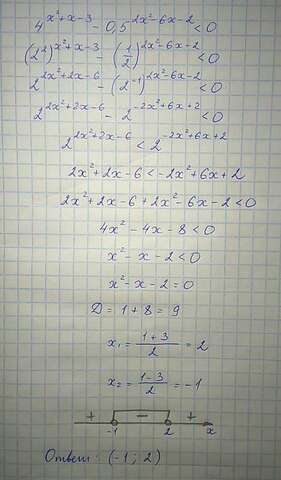 4^{x²+x-3} - 0,5^{2x²-6x-2} < 0
(2²)^{x²+x-3} - (1/2)^{2x²-6x-2} < 0
2^{2x²+2x-6} - (2^{-1})^{2x²-6x-2} < 0
2^{2x²+2x-6} - 2^{-2x²+6x+2} < 0
2^{2x²+2x-6} < 2^{-2x²+6x+2}
2x²+2x-6 < -2x²+6x+2
2x²+2x-6+2x²-6x-2 < 0
4x²-4x-8 < 0
x²-x-2 < 0
x²-x-2 = 0
D = 1+8 = 9
x₁ = (1+3)/2 = 2
x₂ = (1-3)/2 = -1
+ - +
-1 2 x
Ответ: (-1; 2)